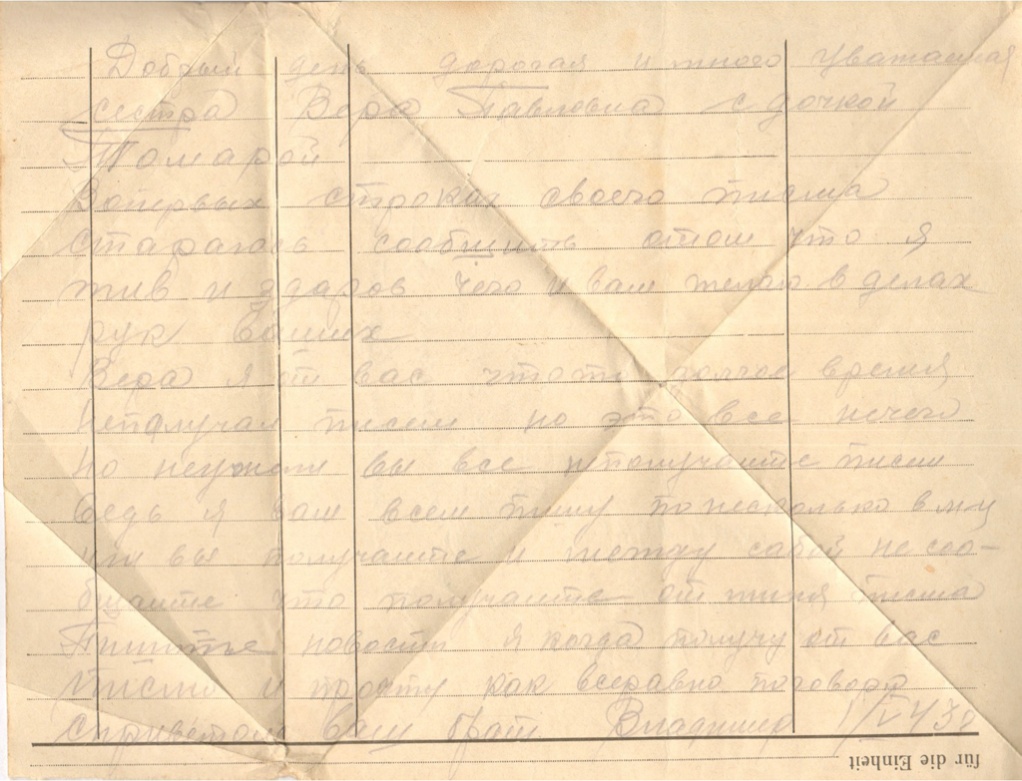 Добрый день дорогая и много уважаемая
сестра Вера Павловна с дочкой
Томарой
Вопервых строках своего писма
стараюсь сообщить отом что я
жив и здаров чего и вам желаю в делах
рук ваших
Вера я от вас чтото долгое время
неполучал писем но это все нечего
но неужели вы все неполучаите писем
ведь я вам всем пишу понесколько в м-ц
или вы получаите и между сабой не соо-
бщаите что получаите от миня писма
Пишите новости я когда получу от вас
писмо и прочту как всеравно поговорю
сприветом ваш брат Владимир 1/V 43г
für die Einheit